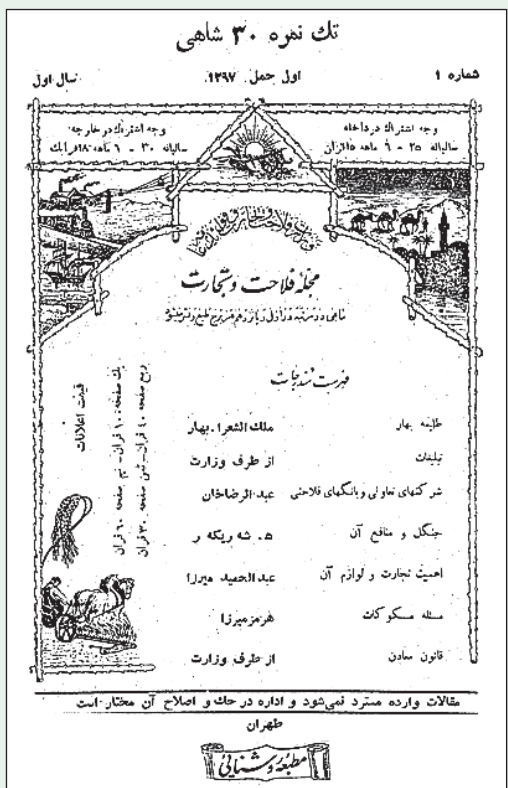 تك نمره ۳۰ شاهی
شماره ۱
اول حمل ۱۲۹۷
سال اول
وجه اشتراك در داخله
سالیانه ۲۵ - ۹ ماهه ۱۵ قران
وجه اشتراك در خارجه
سالیانه ۳۰ - ۶ ماهه ۱۸ فرانك
مجلهٔ فلاحت و تجارت
ماهی دو مرتبه در اول و پانزدهم هر برج طبع و توزیع میشود
فهرست مندرجات
طلیعه بهار
ملك الشعراء بهار
تبلیغات
از طرف وزارت
شرکتهای تعاونی و بانگهای فلاحتی
عبدالرضاخان
جنگل و منافع آن
ه. شه ریکه ر
اهمیت تجارت و لوازم آن
عبدالحمید میرزا
مسئله مسکوکات
هرمز میرزا
قانون معادن
از طرف وزارت
قیمت اعلانات
یك صفحه ۱۰۰ قران - نیم صفحه ۶۰ قران
ربع صفحه ۴۰ قران - ثمن صفحه ۳۰ قران
مقالات وارده مسترد نمی‌شود و اداره در حك و اصلاح آن مختار است
طهران
مطبعهٔ روشنائی